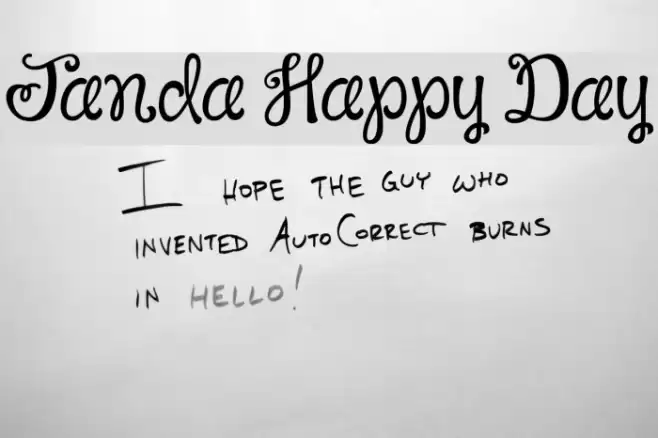 Janda Happy Day
I HOPE THE GUY WHO
INVENTED AUTOCORRECT BURNS
IN HELLO!